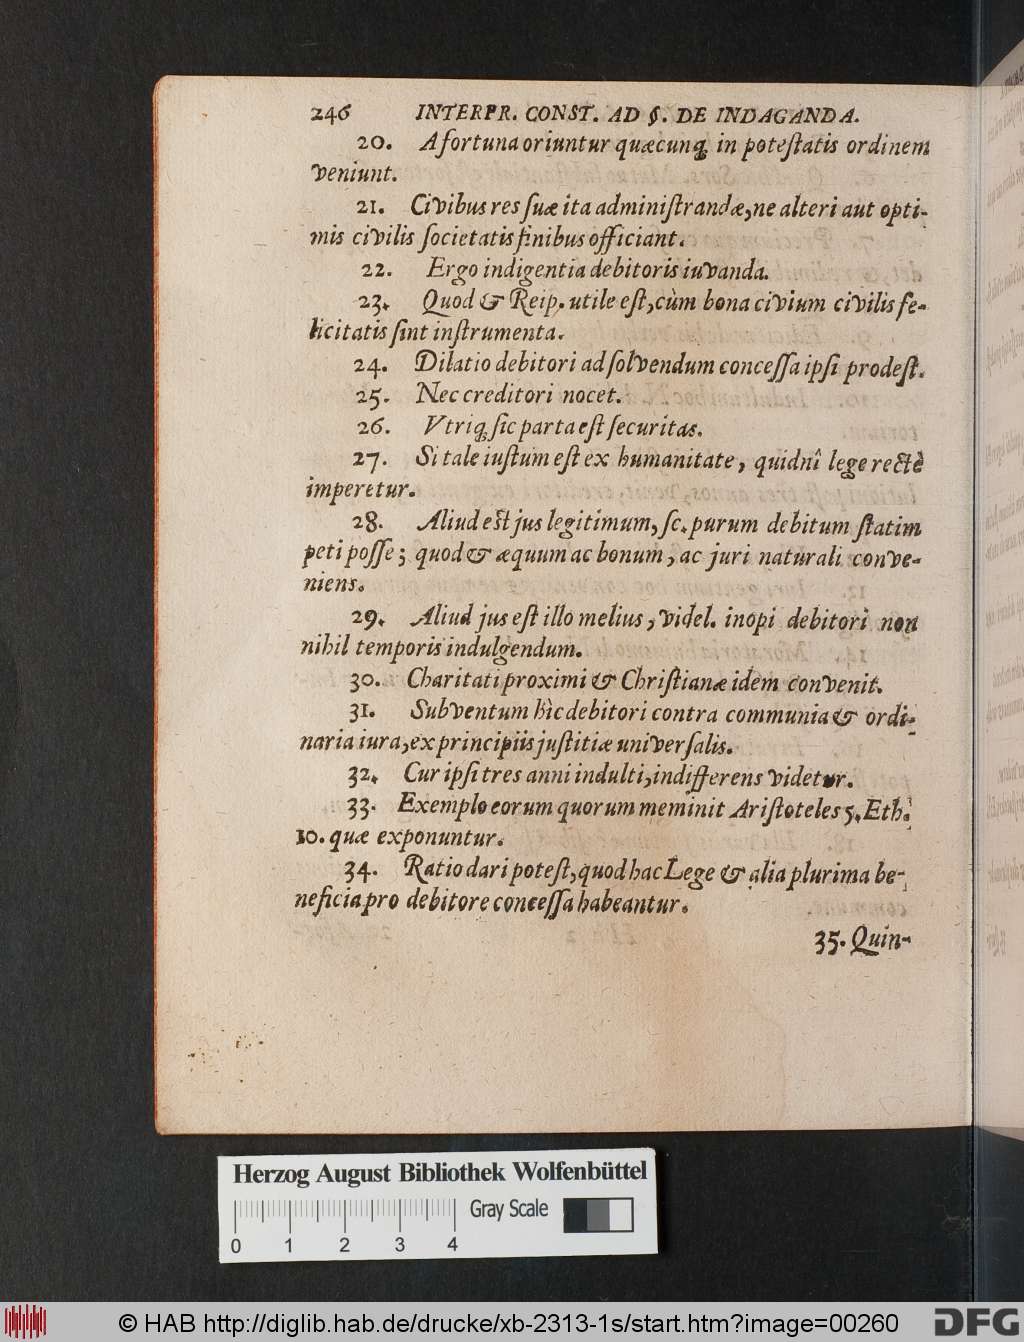 246 INTERPR. CONST. AD §. DE INDAGANDA.
20. A fortuna oriuntur quæcunq́ in poteſtatis ordinem
veniunt.
21. Civibus res ſuæ ita adminiſtrandæ, ne alteri aut opti-
mis civilis ſocietatis finibus officiant.
22. Ergo indigentia debitoris iuvanda.
23. Quod & Reip. utile eſt, cùm bona civium civilis fe-
licitatis ſint inſtrumenta.
24. Dilatio debitori ad ſolvendum conceſſa ipſi prodeſt.
25. Nec creditori nocet.
26. Vtriq́ ſic parta eſt ſecuritas.
27. Si tale iuſtum eſt ex humanitate, quidnî lege rectè
imperetur.
28. Aliud eſt jus legitimum, ſc. purum debitum ſtatim
peti poſſe; quod & æquum ac bonum, ac juri naturali conve-
niens.
29. Aliud jus eſt illo melius, videl. inopi debitori non
nihil temporis indulgendum.
30. Charitati proximi & Chriſtianæ idem convenit.
31. Subventum hìc debitori contra communia & ordi-
naria iura, ex principiis juſtitiæ univerſalis.
32. Cur ipſi tres anni indulti, indifferens videtur.
33. Exemplo eorum quorum meminit Ariſtoteles 5. Eth.
10. quæ exponuntur.
34. Ratio dari poteſt, quod hac Lege & alia plurima be-
neficia pro debitore conceſſa habeantur.
35. Quin-
Herzog August Bibliothek Wolfenbüttel
Gray Scale
0 1 2 3 4
© HAB http://diglib.hab.de/drucke/xb-2313-1s/start.htm?image=00260
DFG